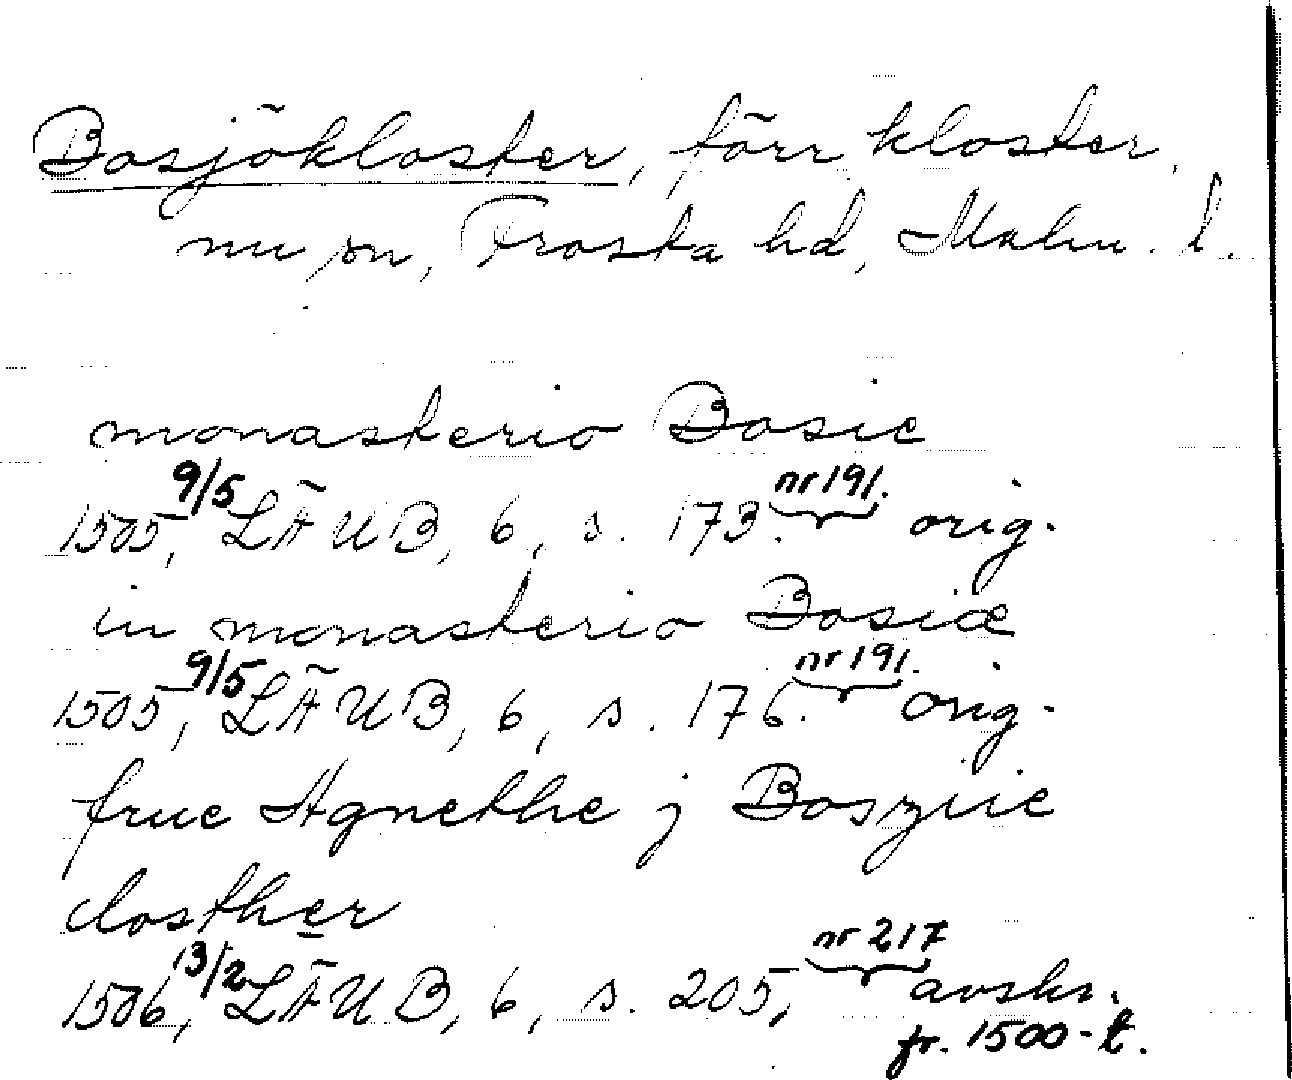 Bosjökloster, förr kloster,
nu sn, Frosta hd, Malm. l.
monasterio Bosie
1505, 9/5 LÄUB, 6, s. 173. nr 191. orig.
in monasterio Bosiæ
1505, 9/5 LÄUB, 6, s. 176. nr 191. orig.
frue Agnethe j Boszyie
closther
1506, 13/2 LÄUB, 6, s. 205, nr 217 avskr.
fr. 1500-t.